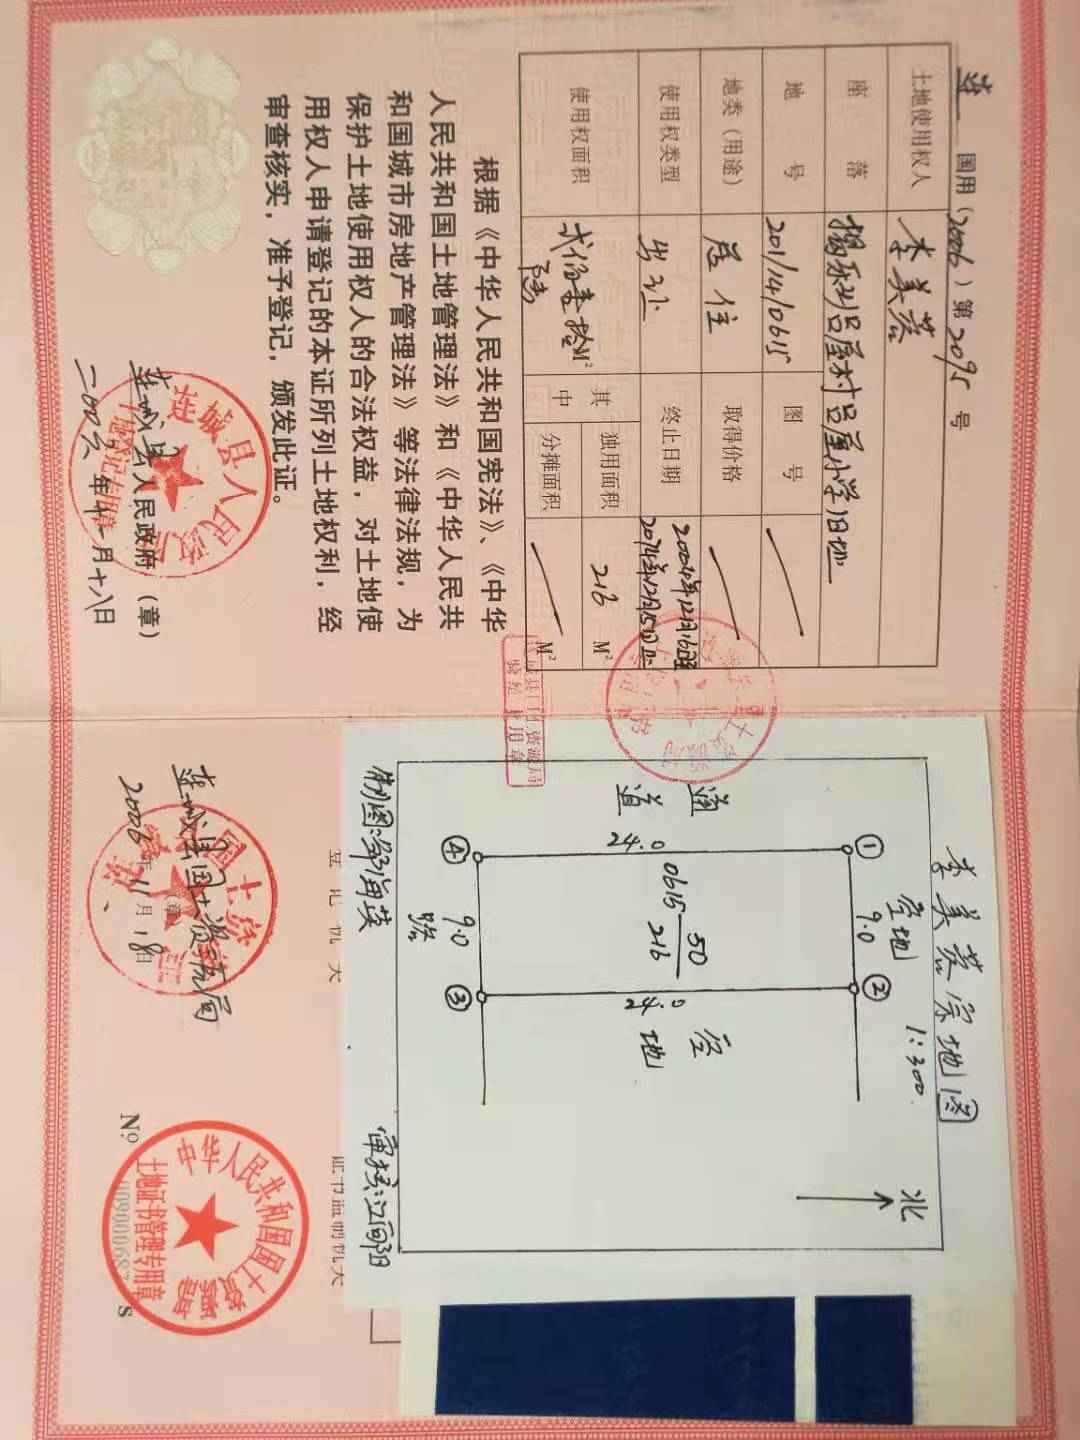 连 国用(2006)第2095号
土地使用权人 李美蓉
座落 揭乐吕屋村吕屋小学旧址
地号 201/14/0615 图号
地类(用途) 居住 取得价格
使用权类型 出让 终止日期 2004年12月16日至2074年12月15日止
使用权面积 贰佰壹拾陆 M² 其中 独用面积 216 M²
分摊面积 M²
根据《中华人民共和国宪法》、《中华
人民共和国土地管理法》和《中华人民共
和国城市房地产管理法》等法律法规,为
保护土地使用权人的合法权益,对土地使
用权人申请登记的本证所列土地权利,经
审查核实,准予登记,颁发此证。
连城县人民政府(章)
二00六年十一月十八日
连城县人民政府
土地登记专用章
李美蓉宗地图
1:300
北
空地
① 9.0 ②
通道
24.0
0615 50
216
24.0
空地
④ 9.0 ③
路
审核:江
登记机关
证书监制机关
连城县国土资源局
(章)
2006年11月18日
中华人民共和国国土资源部
土地证书管理专用章
№ S